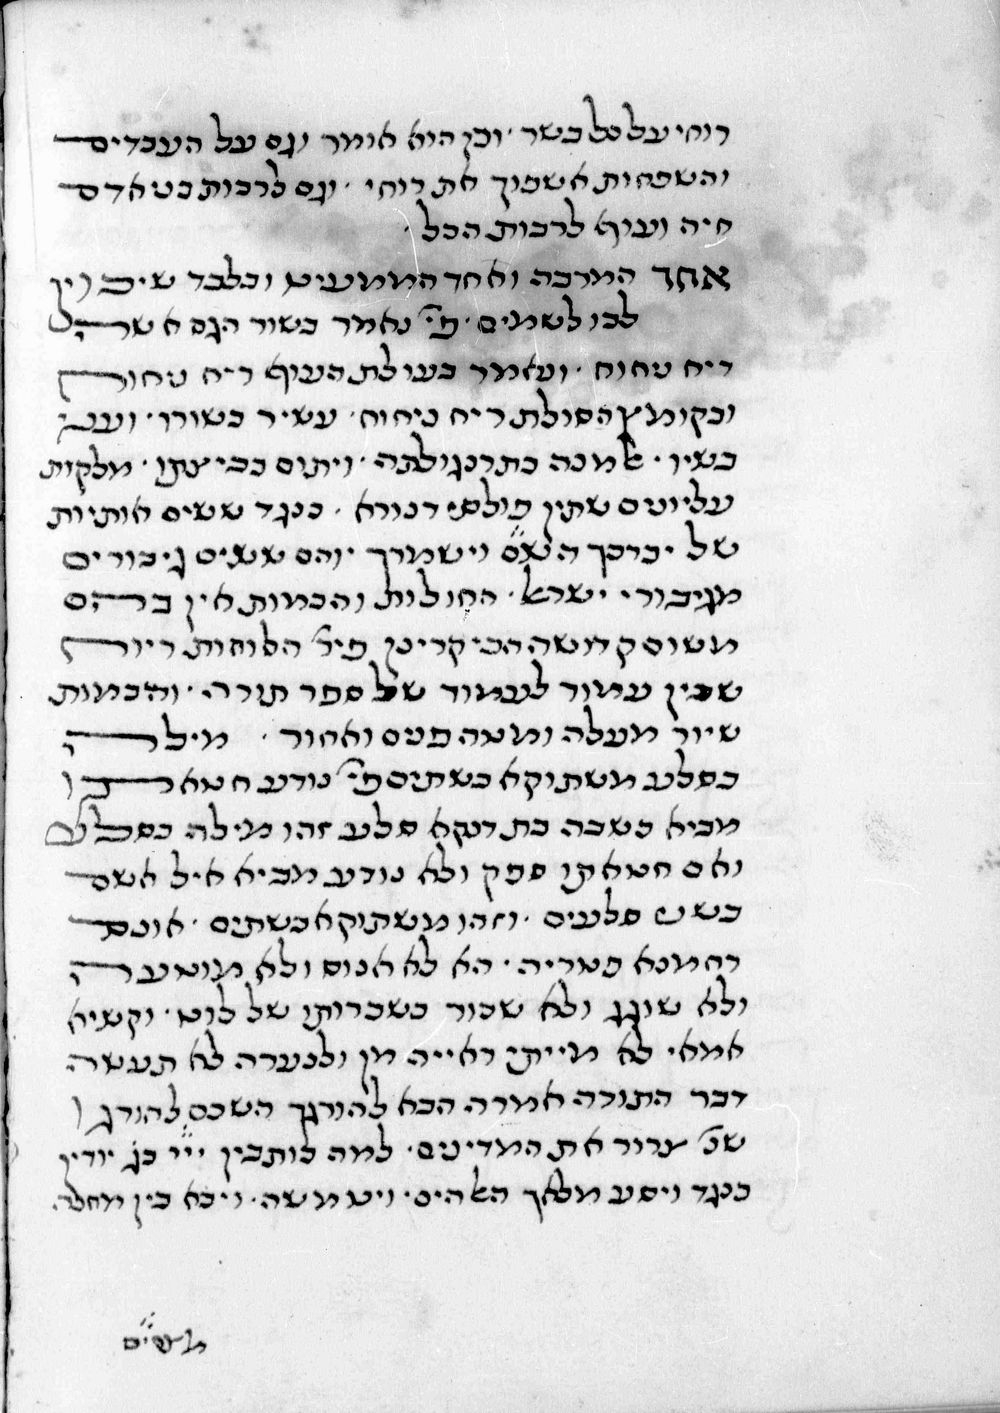 רוחי על כל בשר · וכן הוא אומר וגם על העבדים
והשפחות אשפוך את רוחי · וגם לרבות בט אדם
חיה ועוף לרבות הכל ·
אחד המרבה ואחד הממעיט ובלבד שיכוין
לבו לשמים · פי' נאמר בשור הגס אשה
ריח ניחוח · ונאמר בעולת העוף ריח ניחוח
ובקומץ הסולת ריח ניחוח · עשיר בשורו · ועני
בציו · אלמנה בתרנגולתה · ויתום בביצתו · מלקות
עליונים שתין פולסי דנורא · כנגד ששים אותיות
של יברכך השם וישמרך · והם ששים גיבורים
מגיבורי ישראל · החולות והבמות אין בהם
משום קדושה הכי קרינן פיר' הלוחות ריוח
שבין עמוד לעמוד של ספר תורה · והבמות
שיור מעלה ומטה פנים ואחור · מילה
בסלע משתוקא בשתים פי' נודע חטאתו
מביא כשבה בת דנקא סלע זהו מילה בסלע
ואם חטאתו ספק ולא נודע מביא איל אשם
בשני סלעים · וזהו משתוקא בשתים · אונס
רחמנא פטריה · הא לא אנוס ולא מוטעה
ולא שוגג ולא שכור כשכרותו של לוט · וקשיא
אמאי לא מייתי ראייה מן ולנערה לא תעשה
דבר התורה אמרה הבא להורגך השכם להורגו
שנ' צרור את המדינים · למה כותבין ייי בג' יודין
כנגד ויסע מלאך האלהים · ויט משה · ויבא בין מחנה
מצרים